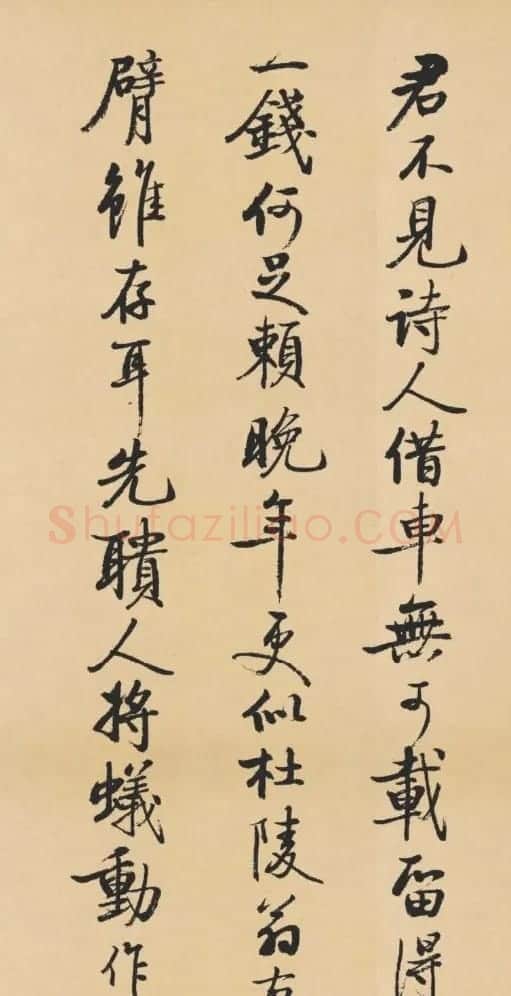 君不見詩人借車無可載留得
一錢何足賴晚年更似杜陵翁右
臂雖存耳先聵人將蟻動作
Shufaziliao.COM